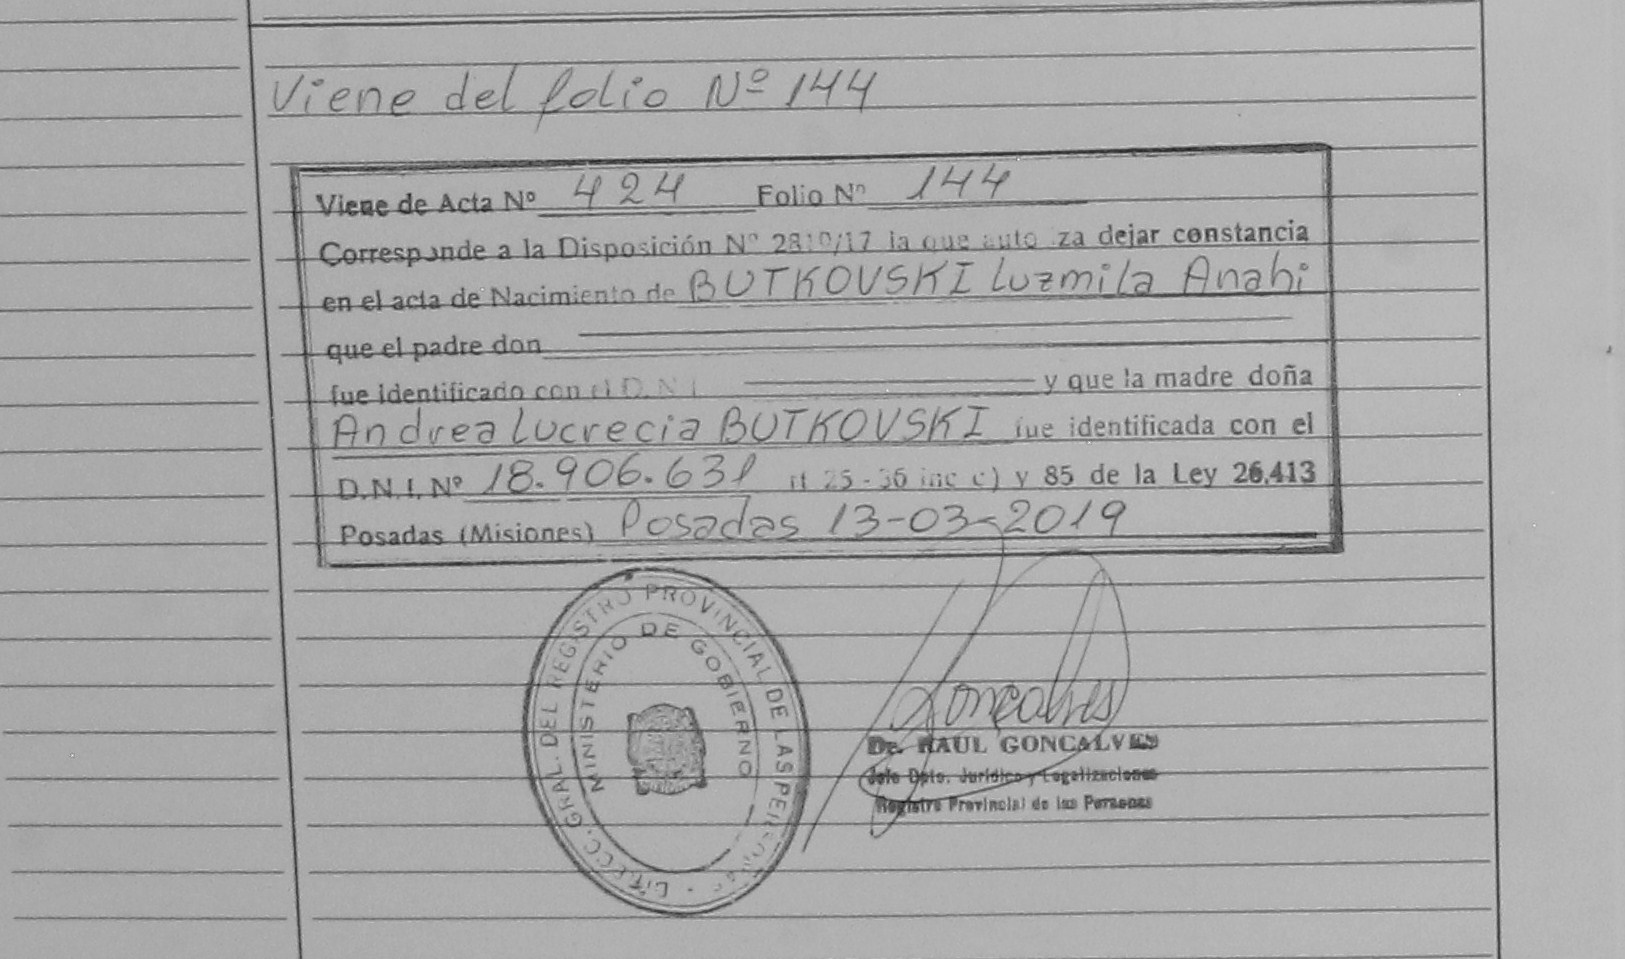 Viene del folio Nº 144
Viene de Acta Nº 424 Folio Nº 144
Corresponde a la Disposición Nº 2810/17 la que autoriza dejar constancia
en el acta de Nacimiento de BUTKOVSKI Luzmila Anahi
que el padre don
fue identificado con el D.N.I. y que la madre doña
Andrea Lucrecia BUTKOVSKI fue identificada con el
D.N.I. Nº 18.906.631 rt 25-36 inc c) y 85 de la Ley 26.413
Posadas (Misiones) Posadas 13-03-2019
DIRECC. GRAL. DEL REGISTRO PROVINCIAL DE LAS PERSONAS
MINISTERIO DE GOBIERNO
Goncalves
Dr. RAUL GONCALVES
Jefe Dpto. Jurídico y Legalizaciones
Registro Provincial de las Personas